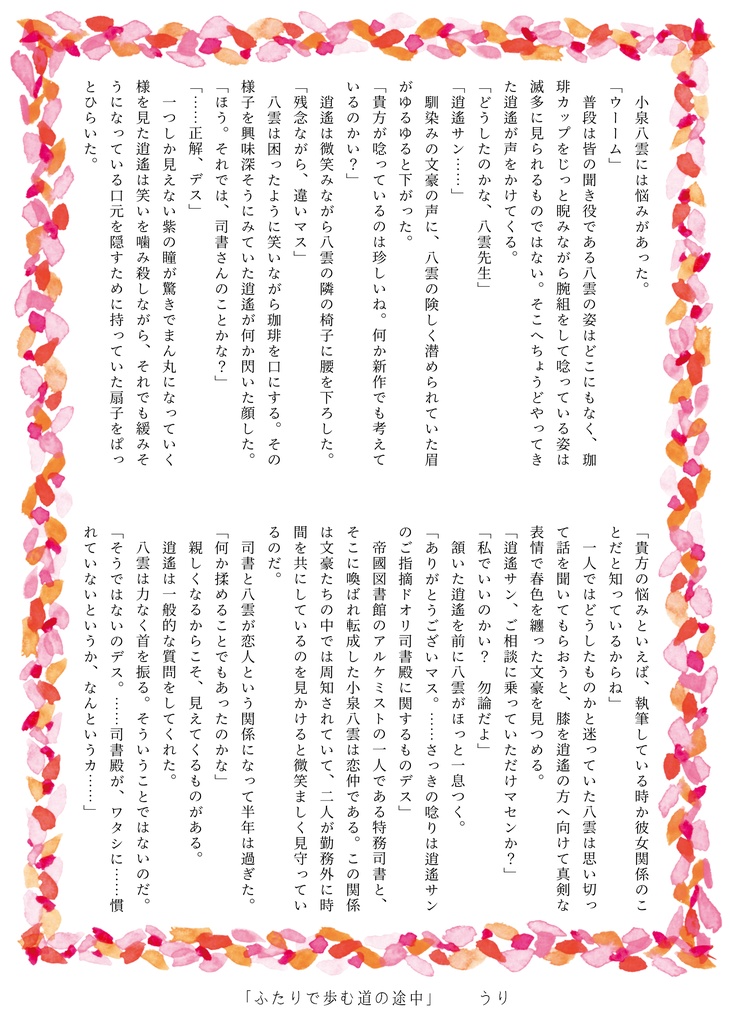 小泉八雲には悩みがあった。
「ウーーム」
普段は皆の聞き役である八雲の姿はどこにもなく、珈
琲カップをじっと睨みながら腕組をして唸っている姿は
滅多に見られるものではない。そこへちょうどやってき
た逍遥が声をかけてくる。
「どうしたのかな、八雲先生」
「逍遥サン……」
馴染みの文豪の声に、八雲の険しく潜められていた眉
がゆるゆると下がった。
「貴方が唸っているのは珍しいね。何か新作でも考えて
いるのかい？」
逍遥は微笑みながら八雲の隣の椅子に腰を下ろした。
「残念ながら、違いマス」
八雲は困ったように笑いながら珈琲を口にする。その
様子を興味深そうにみていた逍遥が何か閃いた顔した。
「ほう。それでは、司書さんのことかな？」
「……正解、デス」
一つしか見えない紫の瞳が驚きでまん丸になっていく
様を見た逍遥は笑いを噛み殺しながら、それでも緩みそ
うになっている口元を隠すために持っていた扇子をぱっ
とひらいた。
「貴方の悩みといえば、執筆している時か彼女関係のこ
とだと知っているからね」
一人ではどうしたものかと迷っていた八雲は思い切っ
て話を聞いてもらおうと、膝を逍遥の方へ向けて真剣な
表情で春色を纏った文豪を見つめる。
「逍遥サン、ご相談に乗っていただけマセンか？」
「私でいいのかい？　勿論だよ」
頷いた逍遥を前に八雲がほっと一息つく。
「ありがとうございマス。……さっきの唸りは逍遥サン
のご指摘ドオリ司書殿に関するものデス」
帝國図書館のアルケミストの一人である特務司書と、
そこに喚ばれ転成した小泉八雲は恋仲である。この関係
は文豪たちの中では周知されていて、二人が勤務外に時
間を共にしているのを見かけると微笑ましく見守ってい
るのだ。
司書と八雲が恋人という関係になって半年は過ぎた。
「何か揉めることでもあったのかな」
親しくなるからこそ、見えてくるものがある。
逍遥は一般的な質問をしてくれた。
八雲は力なく首を振る。そういうことではないのだ。
「そうではないのデス。……司書殿が、ワタシに……慣
れていないというか、なんというカ……」
「ふたりで歩む道の途中」　　うり